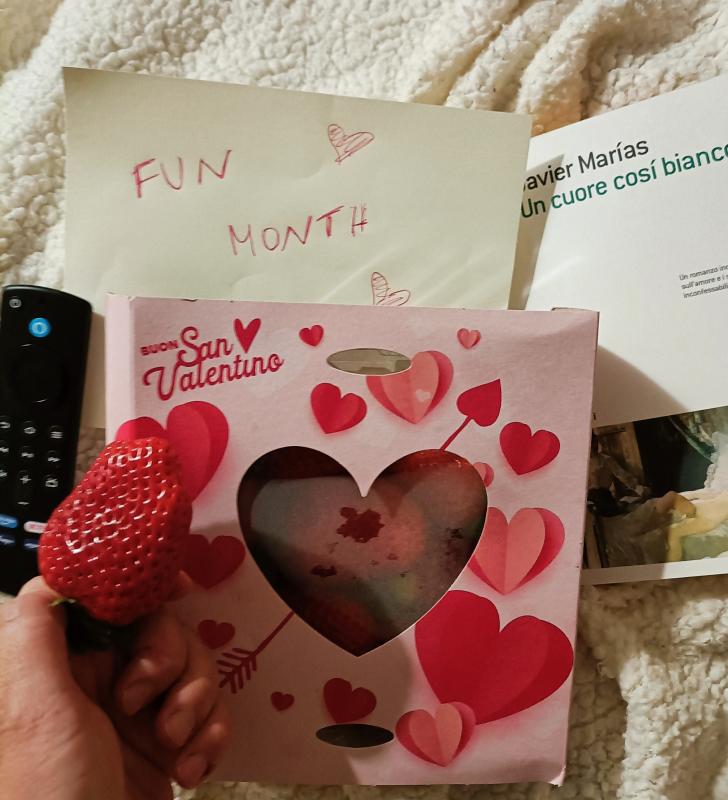 FUN
MONTH
avier Marías
Un cuore cosí bianco
Un romanzo
sull'amore e i
inconfessabili
BUON San
Valentino